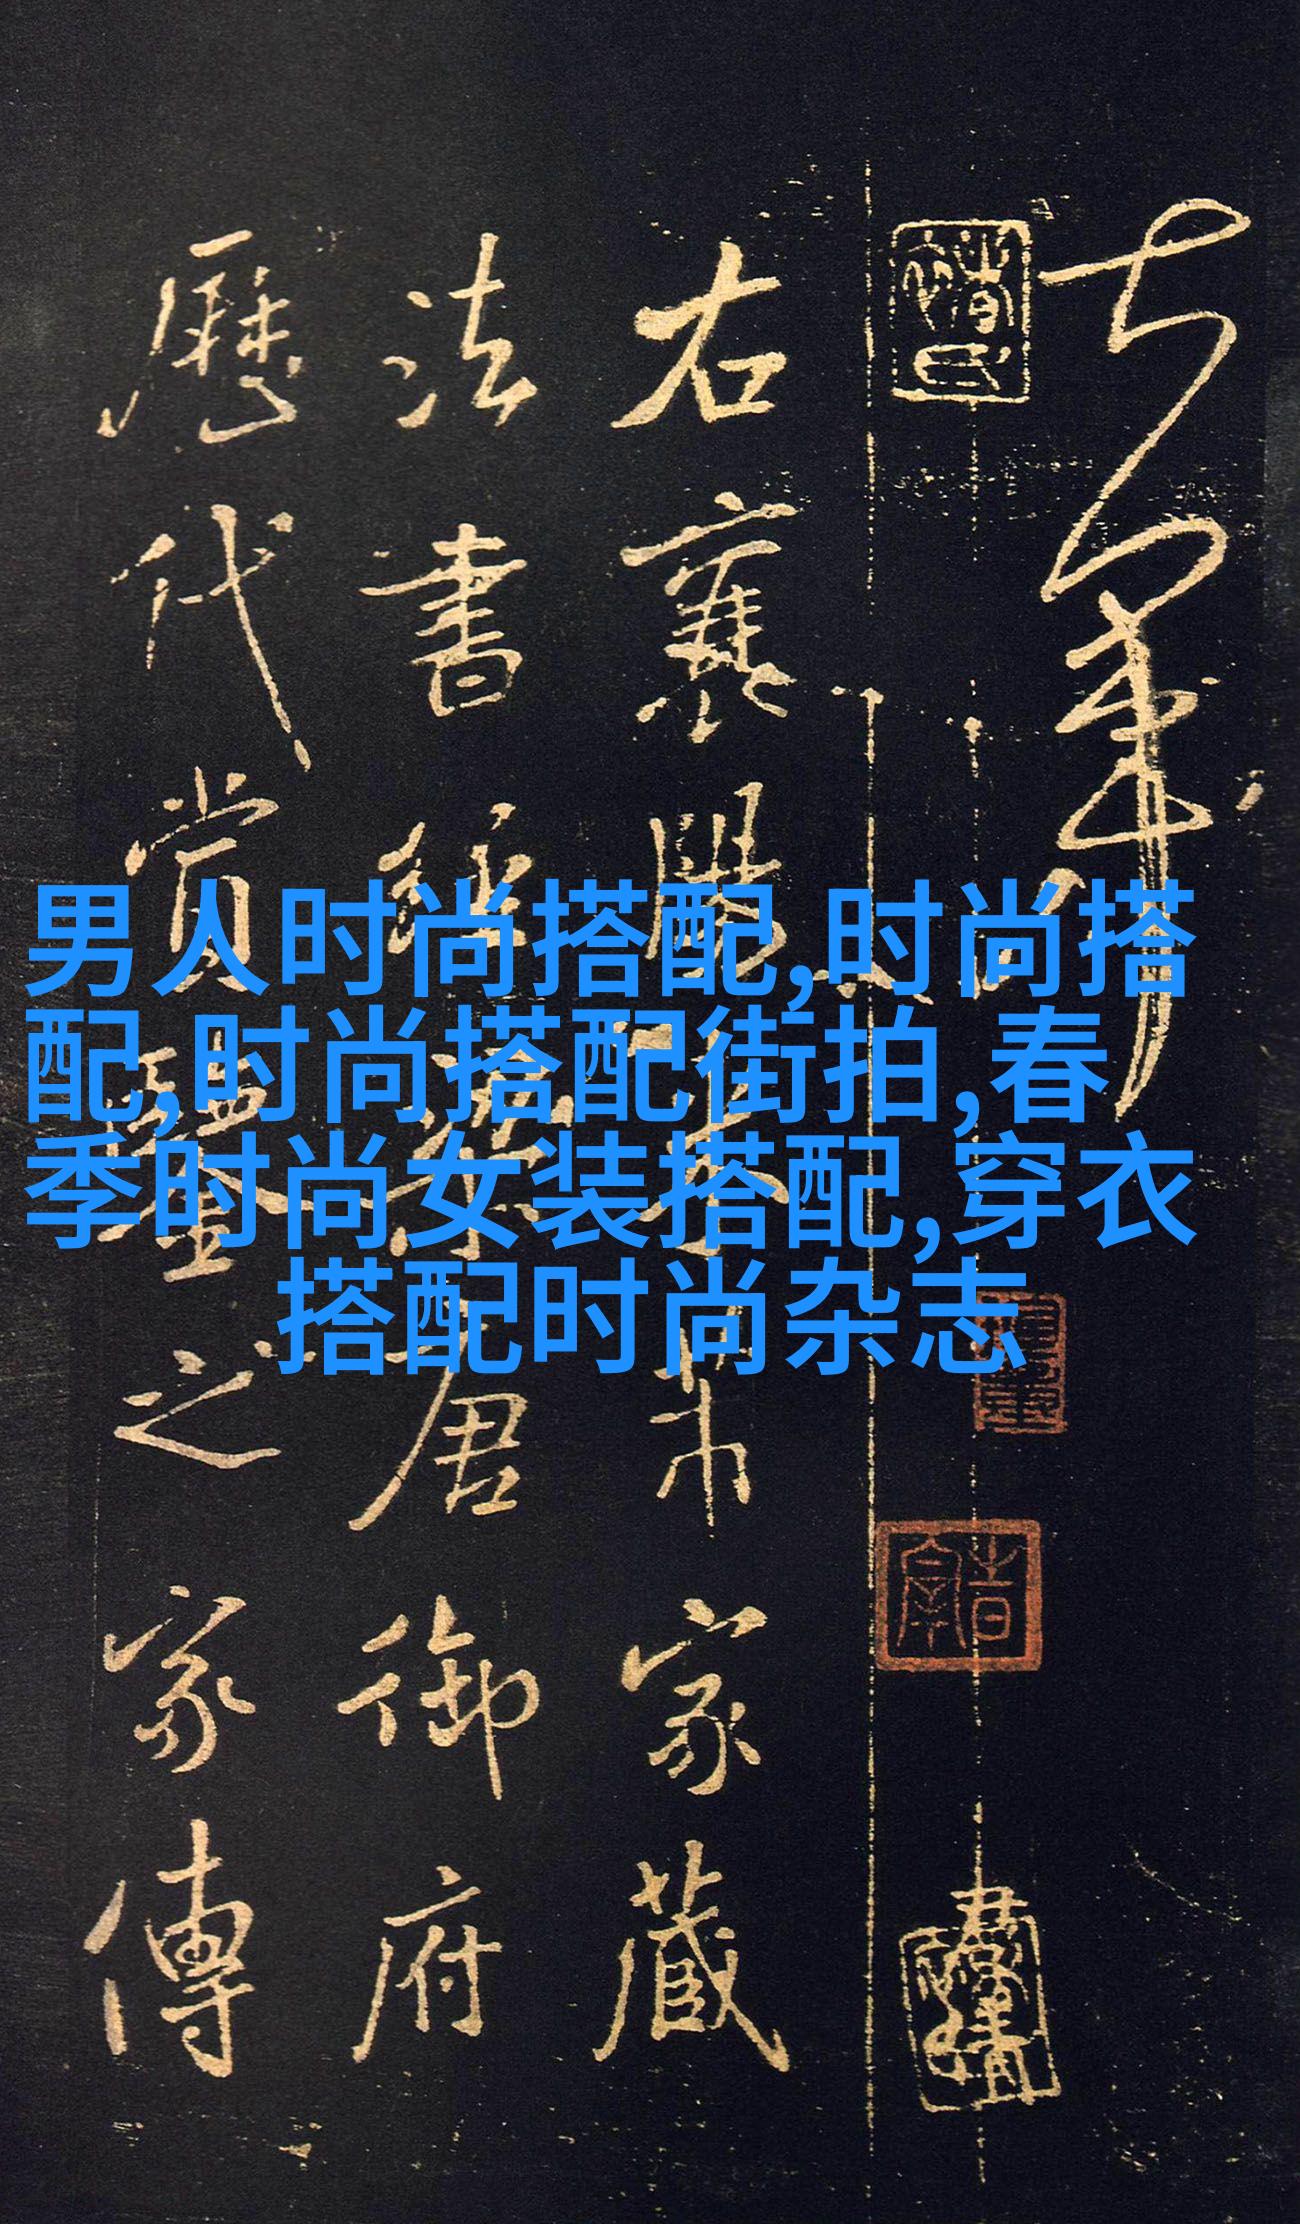 男人时尚搭配,时尚搭
配,时尚搭配街拍,春
季时尚女装搭配,穿衣
搭配时尚杂志
右襄陽米芾家藏
法書經梁唐御府
歷代賞鑒之家傳